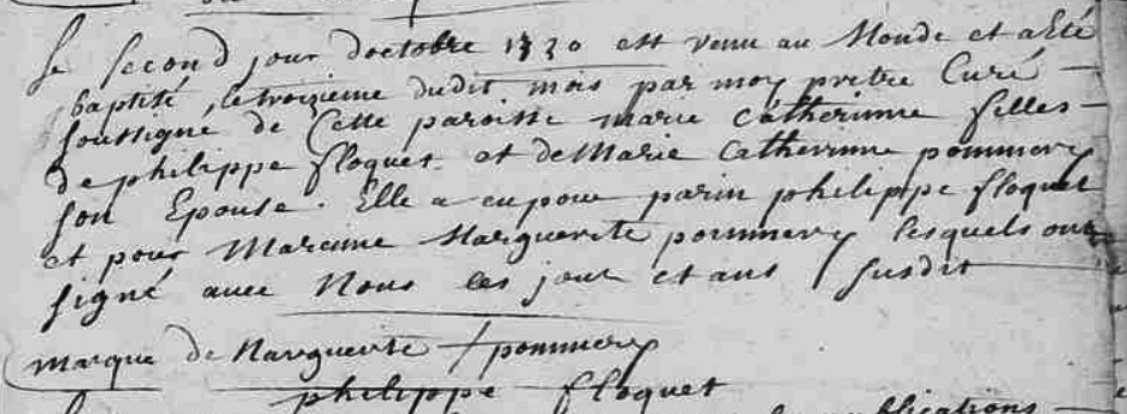 Le second jour doctobre 1730 est venu au Monde et a Eté
baptisé, le troizieme dudit mois par moy pretre Curé
soussigné de Cette paroisse marie catherinne filles
de philippe floquet et de Marie Catherinne pommery
son Epouse. Elle a eu pour parin philippe floquet
et pour Mareinne Marguerite pommery lesquels ont
signé avec Nous les jour et ans susdit
marque de Marguerite + pommery
philippe floquet
publications